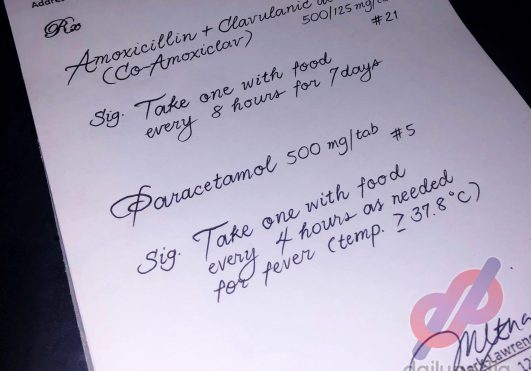 Address
Rx
Amoxicillin + Clavulanic
500/125 mg/tab
(Co-Amoxiclav)
#21
Sig. Take one with food
every 8 hours for 7 days
Paracetamol 500 mg/tab #5
Sig. Take one with food
every 4 hours as needed
for fever (temp. ≥ 37.8°C)